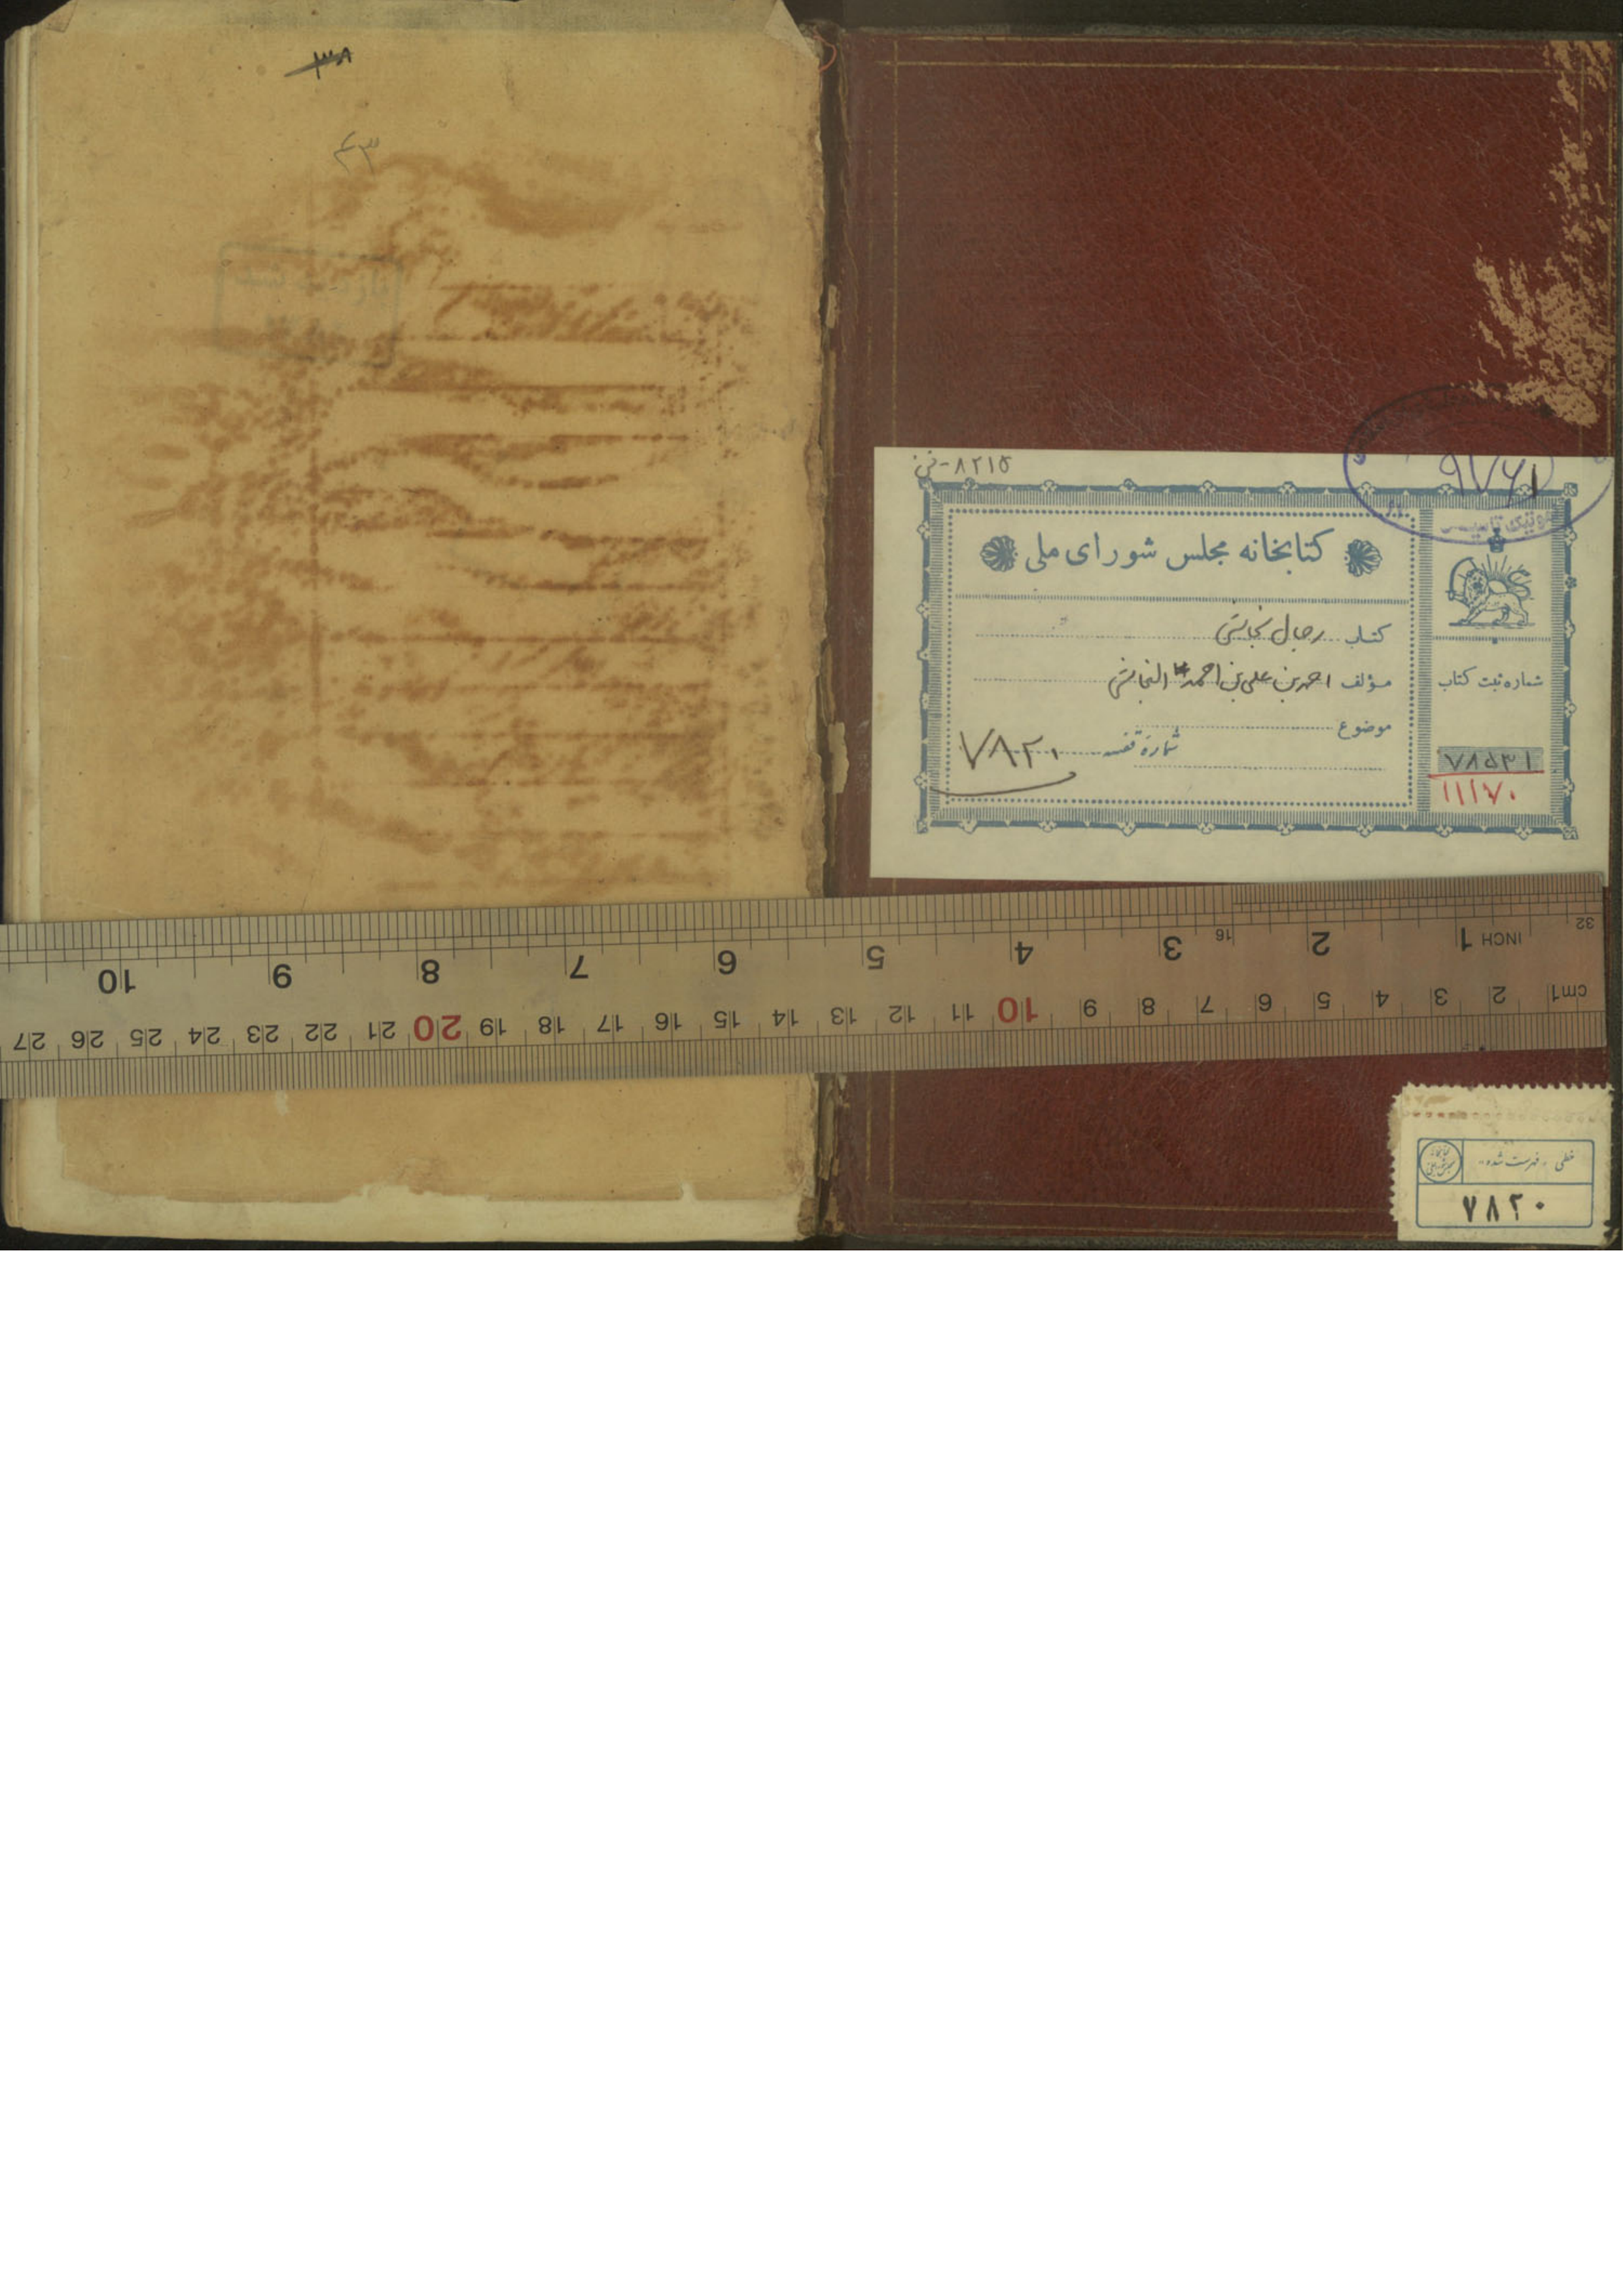 ۳۸
۴۳
۸۲۱۵-ف
۹۷۶۱
کتابخانه مجلس شورای ملی
کتاب رجال نجاشی
مؤلف احمد بن علی بن احمد النجاشی
موضوع
شمارهٔ قفسه ۷۸۲۰
شماره ثبت کتاب
۷۸۵۳۱
۱۱۱۷۰
32
INCH 1 2 3 16 4 5 6 7 8 9 10
cm1 2 3 4 5 6 7 8 9 10 11 12 13 14 15 16 17 18 19 20 21 22 23 24 25 26 27
خطی «فهرست شده»
۷۸۲۰